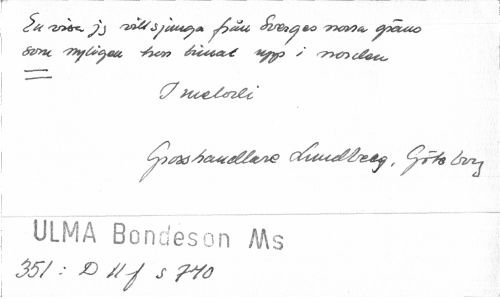 En visa jg vill sjunga från Sverges norra gräns
som nyligen har timat upp i norden
I melodi
Grosshandlare Lundberg, Göteborg
ULMA Bondeson Ms
351: D II f s 740